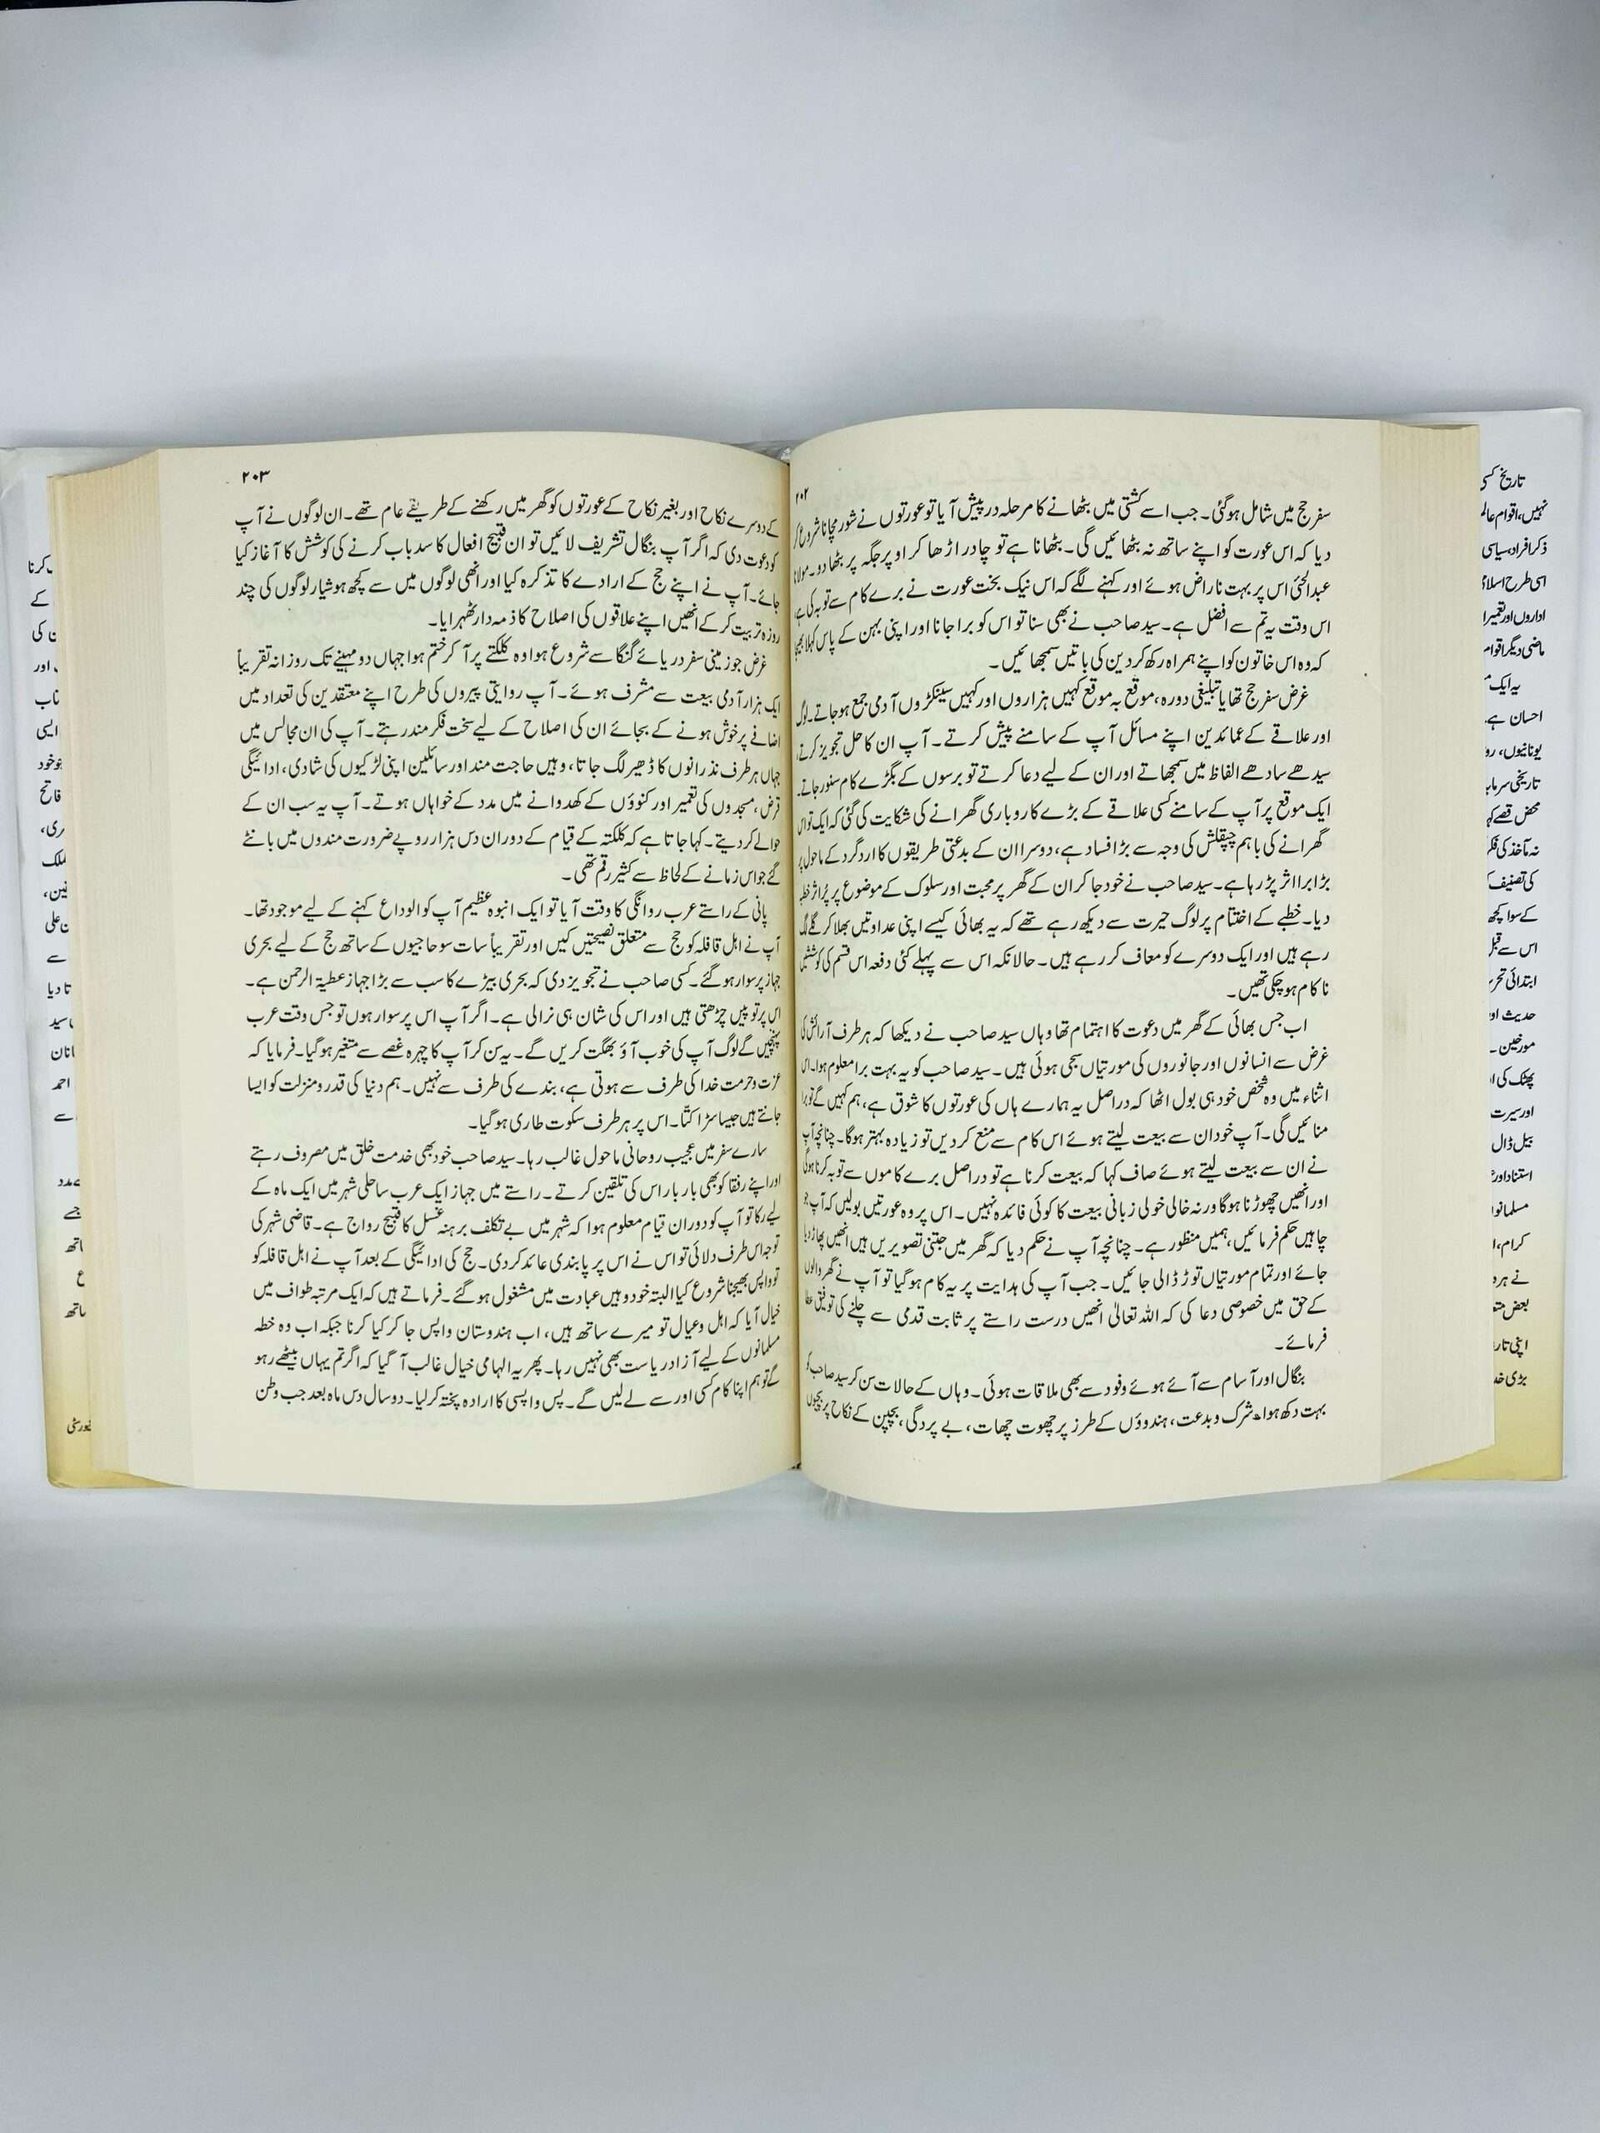 ۲۰۲
سفر حج میں شامل ہو گئی۔ جب اسے کشتی میں بٹھانے کا مرحلہ در پیش آیا تو عورتوں نے شور مچانا شروع کر
دیا کہ اس عورت کو اپنے ساتھ نہ بٹھائیں گی۔ بٹھانا ہے تو چادر اڑھا کر اوپر جگہ پر بٹھا دو۔ مولانا
عبدالحئی اس پر بہت ناراض ہوئے اور کہنے لگے کہ اس نیک بخت عورت نے برے کام سے توبہ کی ہے
اس وقت یہ تم سے افضل ہے۔ سید صاحب نے بھی سنا تو اس کو برا جانا اور اپنی بہن کے پاس کہلا بھیجا
کہ وہ اس خاتون کو اپنے ہمراہ رکھ کر دین کی باتیں سمجھائیں۔
غرض سفر حج تھا یا تبلیغی دورہ، موقع بہ موقع کہیں ہزاروں اور کہیں سینکڑوں آدمی جمع ہو جاتے۔ لوگ
اور علاقے کے عمائدین اپنے مسائل آپ کے سامنے پیش کرتے۔ آپ ان کا حل تجویز کرتے
سیدھے سادھے الفاظ میں سمجھاتے اور ان کے لیے دعا کرتے تو برسوں کے بگڑے کام سنور جاتے۔
ایک موقع پر آپ کے سامنے کسی علاقے کے بڑے کاروباری گھرانے کی شکایت کی گئی کہ ایک تو اس
گھرانے کی باہم چپقلش کی وجہ سے بڑا فساد ہے، دوسرا ان کے بدعتی طریقوں کا اردگرد کے ماحول پر
بڑا برا اثر پڑ رہا ہے۔ سید صاحب نے خود جا کر ان کے گھر پر محبت اور سلوک کے موضوع پر پُراثر خطبہ
دیا۔ خطبے کے اختتام پر لوگ حیرت سے دیکھ رہے تھے کہ یہ بھائی کیسے اپنی عداوتیں بھلا کر گلے لگ
رہے ہیں اور ایک دوسرے کو معاف کر رہے ہیں۔ حالانکہ اس سے پہلے کئی دفعہ اس قسم کی کوششیں
ناکام ہو چکی تھیں۔
اب جس بھائی کے گھر میں دعوت کا اہتمام تھا وہاں سید صاحب نے دیکھا کہ ہر طرف آرائش کی
غرض سے انسانوں اور جانوروں کی مورتیاں سجی ہوئی ہیں۔ سید صاحب کو یہ بہت برا معلوم ہوا۔ اس
اثناء میں وہ شخص خود ہی بول اٹھا کہ دراصل یہ ہمارے ہاں کی عورتوں کا شوق ہے، ہم کہیں گے تو برا
منائیں گی۔ آپ خود ان سے بیعت لیتے ہوئے اس کام سے منع کر دیں تو زیادہ بہتر ہوگا۔ چنانچہ آپ
نے ان سے بیعت لیتے ہوئے صاف کہا کہ بیعت کرنا ہے تو دراصل برے کاموں سے توبہ کرنا ہوگی
اور انھیں چھوڑنا ہوگا ورنہ خالی خولی زبانی بیعت کا کوئی فائدہ نہیں۔ اس پر وہ عورتیں بولیں کہ آپ جو
چاہیں حکم فرمائیں، ہمیں منظور ہے۔ چنانچہ آپ نے حکم دیا کہ گھر میں جتنی تصویریں ہیں انھیں پھاڑ دیا
جائے اور تمام مورتیاں توڑ ڈالی جائیں۔ جب آپ کی ہدایت پر یہ کام ہو گیا تو آپ نے گھر والوں
کے حق میں خصوصی دعا کی کہ اللہ تعالیٰ انھیں درست راستے پر ثابت قدمی سے چلنے کی توفیق عطا
فرمائے۔
بنگال اور آسام سے آئے ہوئے وفود سے بھی ملاقات ہوئی۔ وہاں کے حالات سن کر سید صاحب کو
بہت دکھ ہوا۔ شرک و بدعت، ہندوؤں کے طرز پر چھوت چھات، بے پردگی، بچپن کے نکاح پر بچیوں
۲۰۳
کے دوسرے نکاح اور بغیر نکاح کے عورتوں کو گھر میں رکھنے کے طریقے عام تھے۔ ان لوگوں نے آپ
کو دعوت دی کہ اگر آپ بنگال تشریف لائیں تو ان قبیح افعال کا سدباب کرنے کی کوشش کا آغاز کیا
جائے۔ آپ نے اپنے حج کے ارادے کا تذکرہ کیا اور انھی لوگوں میں سے کچھ ہوشیار لوگوں کی چند
روزہ تربیت کر کے انھیں اپنے علاقوں کی اصلاح کا ذمہ دار ٹھہرایا۔
غرض جو زمینی سفر دریائے گنگا سے شروع ہوا وہ کلکتے پر آ کر ختم ہوا جہاں دو مہینے تک روزانہ تقریباً
ایک ہزار آدمی بیعت سے مشرف ہوئے۔ آپ روایتی پیروں کی طرح اپنے معتقدین کی تعداد میں
اضافے پر خوش ہونے کے بجائے ان کی اصلاح کے لیے سخت فکر مند رہتے۔ آپ کی ان مجالس میں
جہاں ہر طرف نذرانوں کا ڈھیر لگ جاتا، وہیں حاجت مند اور سائلین اپنی لڑکیوں کی شادی، ادائیگی
قرض، مسجدوں کی تعمیر اور کنوؤں کے کھدوانے میں مدد کے خواہاں ہوتے۔ آپ یہ سب ان کے
حوالے کر دیتے۔ کہا جاتا ہے کہ کلکتہ کے قیام کے دوران دس ہزار روپے ضرورت مندوں میں بانٹے
گئے جو اس زمانے کے لحاظ سے کثیر رقم تھی۔
پانی کے راستے عرب روانگی کا وقت آیا تو ایک انبوہ عظیم آپ کو الوداع کہنے کے لیے موجود تھا۔
آپ نے اہل قافلہ کو حج سے متعلق نصیحتیں کیں اور تقریباً سات سو حاجیوں کے ساتھ حج کے لیے بحری
جہاز پر سوار ہو گئے۔ کسی صاحب نے تجویز دی کہ بحری بیڑے کا سب سے بڑا جہاز عطیۃ الرحمن ہے۔
اس پر توپیں چڑھتی ہیں اور اس کی شان ہی نرالی ہے۔ اگر آپ اس پر سوار ہوں تو جس وقت عرب
پہنچیں گے لوگ آپ کی خوب آؤ بھگت کریں گے۔ یہ سن کر آپ کا چہرہ غصے سے متغیر ہو گیا۔ فرمایا کہ
عزت و حرمت خدا کی طرف سے ہوتی ہے، بندے کی طرف سے نہیں۔ ہم دنیا کی قدر و منزلت کو ایسا
جانتے ہیں جیسا سڑا کتا۔ اس پر ہر طرف سکوت طاری ہو گیا۔
سارے سفر میں عجیب روحانی ماحول غالب رہا۔ سید صاحب خود بھی خدمت خلق میں مصروف رہتے
اور اپنے رفقا کو بھی بار بار اس کی تلقین کرتے۔ راستے میں جہاز ایک عرب ساحلی شہر میں ایک ماہ کے
لیے رکا تو آپ کو دوران قیام معلوم ہوا کہ شہر میں بے تکلف برہنہ غسل کا قبیح رواج ہے۔ قاضی شہر کی
توجہ اس طرف دلائی تو اس نے اس پر پابندی عائد کر دی۔ حج کی ادائیگی کے بعد آپ نے اہل قافلہ کو
تو واپس بھیجنا شروع کیا البتہ خود وہیں عبادت میں مشغول ہو گئے۔ فرماتے ہیں کہ ایک مرتبہ طواف میں
خیال آیا کہ اہل و عیال تو میرے ساتھ ہیں، اب ہندوستان واپس جا کر کیا کرنا جبکہ اب وہ خطہ
مسلمانوں کے لیے آزاد ریاست بھی نہیں رہا۔ پھر یہ الہامی خیال غالب آ گیا کہ اگر تم یہاں بیٹھے رہو
گے تو ہم اپنا کام کسی اور سے لے لیں گے۔ پس واپسی کا ارادہ پختہ کر لیا۔ دو سال دس ماہ بعد جب وطن
تاریخ کسی
نہیں، اقوام عالم
ذکر افراد، سیاسی
اسی طرح اسلام
اداروں اور تعمیر
ماضی دیگر اقوام
یہ ایک
احسان ہے
یونانیوں، رو
تاریخی سرمایہ
محض قصے
نہ مآخذ کی فکر
کی تصنیف
کے سوا کچھ
اس سے قبل
ابتدائی تحر
حدیث اور
مورخین۔
پھٹک کی
اور سیرت
بیل ڈال
استناد اور
مسلمانوں
کرام،
نے ہر
بعض
اپنی تار
بڑی خد
کرنا
کے
کی
اور
ایسی
فاتح
ملک
سے
تا دیا
سید
احمد
سے
مدد
جسے